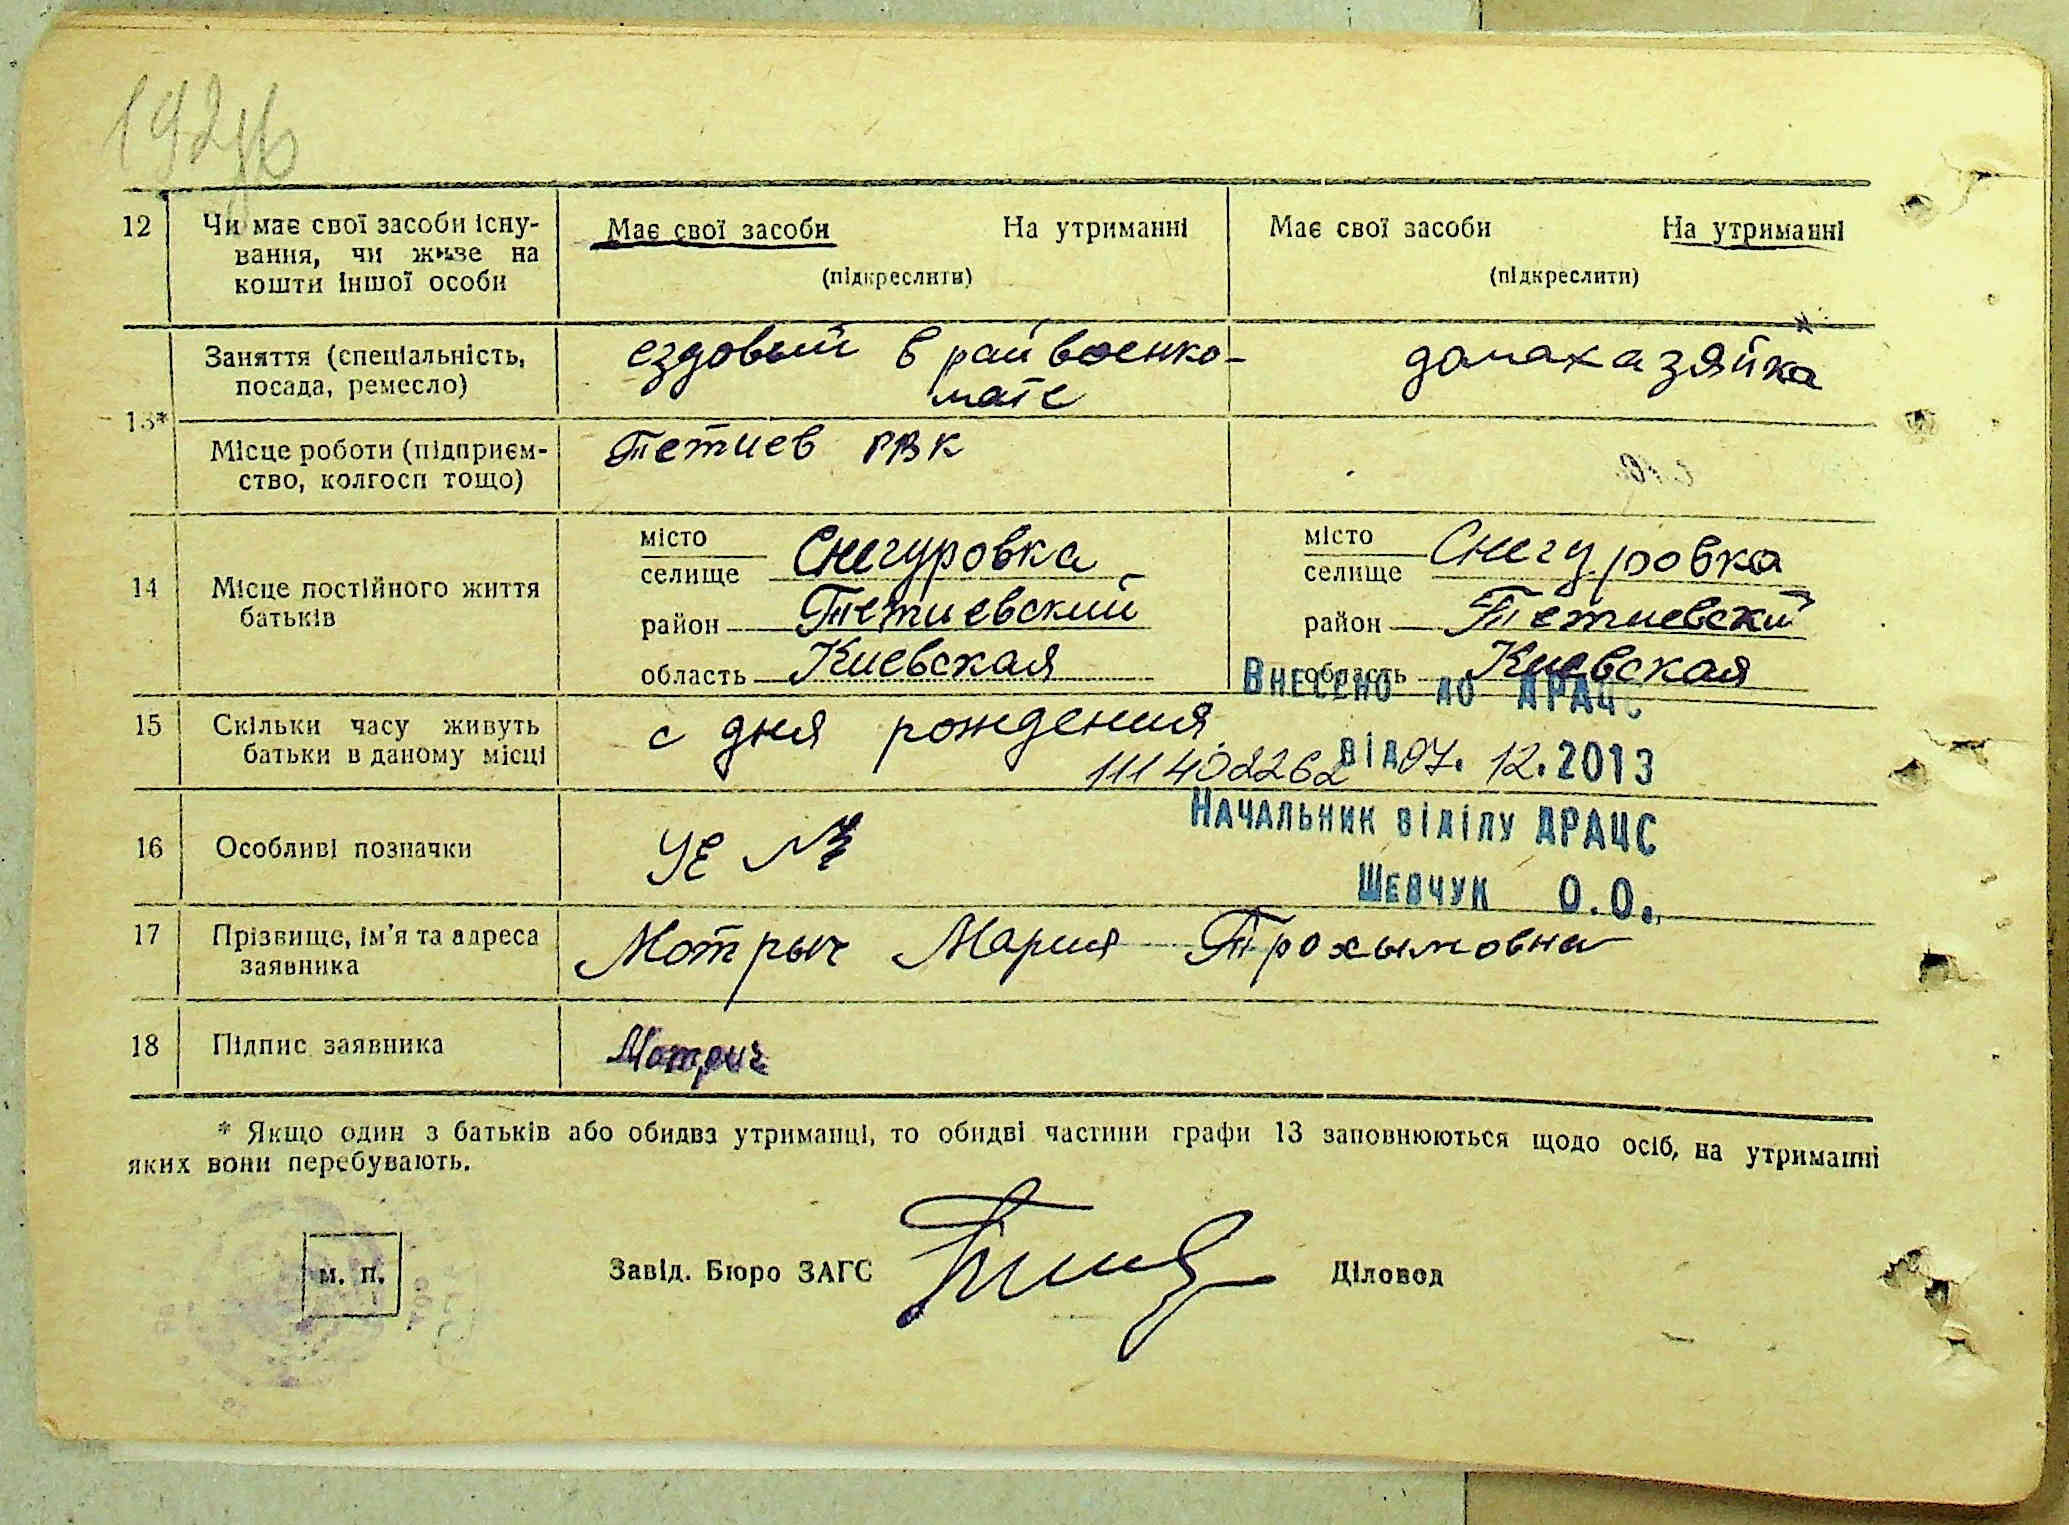 192
12 Чи має свої засоби існу- Має свої засоби На утриманні Має свої засоби На утриманні
вання, чи живе на
кошти іншої особи (підкреслити) (підкреслити)
13*
Заняття (спеціальність, ездовый в райвоенко- домахазяйка
посада, ремесло) мате
Місце роботи (підприєм- Тетиев РВК
ство, колгосп тощо)
14 Місце постійного життя
батьків
місто
селище Снегуровка
район Тетиевский
область Киевская
місто
селище Снегуровка
район Тетиевски
область Киевская
Внесено до ДРАЦС
15 Скільки часу живуть с дня рождения.
батьки в даному місці 111402262 від 07. 12.2013
Начальник відділу ДРАЦС
16 Особливі позначки УЕ №
Шевчук О.О.
17 Прізвище, ім'я та адреса Мотрыч Мария Трохымовна
заявника
18 Підпис заявника Мотрич
* Якщо один з батьків або обидва утриманці, то обидві частини графи 13 заповнюються щодо осіб, на утриманні
яких вони перебувають.
м. п. Завід. Бюро ЗАГС Діловод